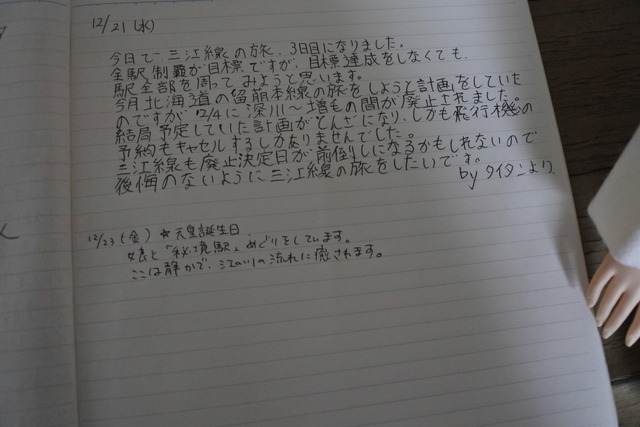 12/21(水)
今日で三江線の旅、3日目になりました。
全駅制覇が目標ですが、目標達成をしなくても、
駅全部を周ってみようと思います。
今月北海道の留萌本線の旅をしようと計画をしていた
のですが12/4に深川〜増毛の間が廃止されました。
結局予定していた計画がとんざになり、しかも飛行機の
予約もキャセルするしかありませんでした。
三江線も廃止決定日が前倒しになるかもしれないので
後悔のないように三江線の旅をしたいです。
by タイタンより。
12/23(金) ☆天皇誕生日。
娘と「秘境駅」めぐりをしています。
ここは静かで、江の川の流れに癒されます。